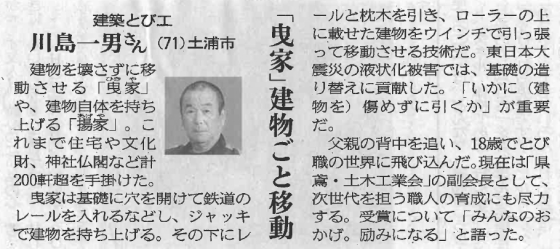 建築とび工
川島一男さん(71)土浦市
「曳家」建物ごと移動
建物を壊さずに移
動させる「曳家」
や、建物自体を持ち
上げる「揚家」。こ
れまで住宅や文化
財、神社仏閣など計
200軒超を手掛けた。
曳家は基礎に穴を開けて鉄道の
レールを入れるなどし、ジャッキ
で建物を持ち上げる。その下にレ
ールと枕木を引き、ローラーの上
に載せた建物をウインチで引っ張
って移動させる技術だ。東日本大
震災の液状化被害では、基礎の造
り替えに貢献した。「いかに(建
物を)傷めずに引くか」が重要
だ。
父親の背中を追い、18歳でとび
職の世界に飛び込んだ。現在は「県
鳶・土木工業会」の副会長として、
次世代を担う職人の育成にも尽力
する。受賞について「みんなのお
かげ。励みになる」と語った。